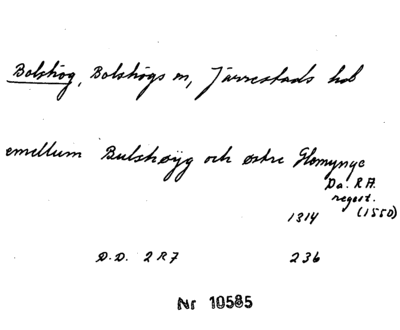 Bolshög, Bolshögs sn, Järrestads hd
emellum Bulshøyg och østre Glomynge
Da. RA.
regest.
1314 (1550)
D.D. 2 R 7 236
Nr 10585